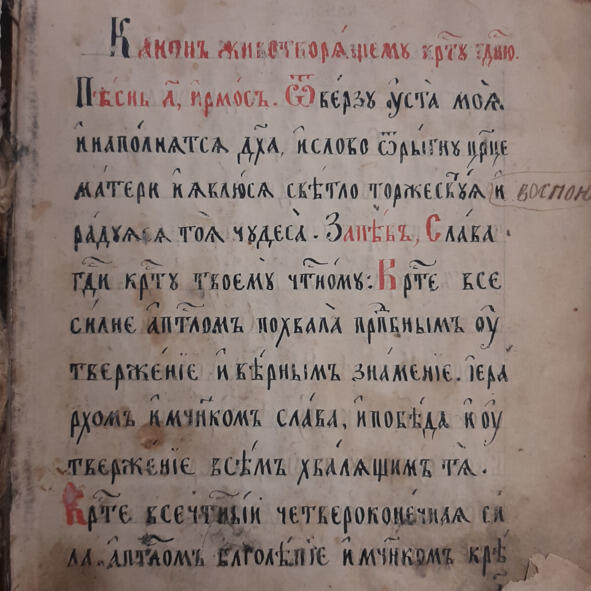 Канонъ животворѧ́щему крⷭ҇ту гдⷭ҇ню.
Пѣ́снь а҃, і҆рмо́съ. Ѿве́рзу оу҆ста̀ моѧ̀
и҆ напо́лнѧтсѧ дх҃а, и҆ сло́во ѿры́гну црⷪ҇це
матери и҆ ꙗ҆влю́сѧ свѣ́тло торжесⷭ҇твуѧ и҆ воспою
радуѧсѧ тоѧ̀ чудеса̀. Запѣ́въ, Сла́ва
гдⷭ҇и крⷭ҇ту твоемꙋ̀ чтⷭ҇ному: Крⷭ҇те все
си́лне а҆пⷭ҇толомъ похвала̀ прпⷣбнымъ оу҆
твержде́нїе и҆ вѣ́рнымъ зна́менїе. І҆ера
рхомъ и҆ мч҃нкомъ сла́ва, и҆ побѣ́да и҆ оу҆
твержде́нїе всѣ́мъ хва́лѧщимъ тѧ̀.
Крⷭ҇те всечтⷭ҇ны́й четвероконе́чнаѧ си
ла. а҆пⷭ҇толомъ бл҃голѣ́пїе и҆ мч҃нкомъ крѣ́